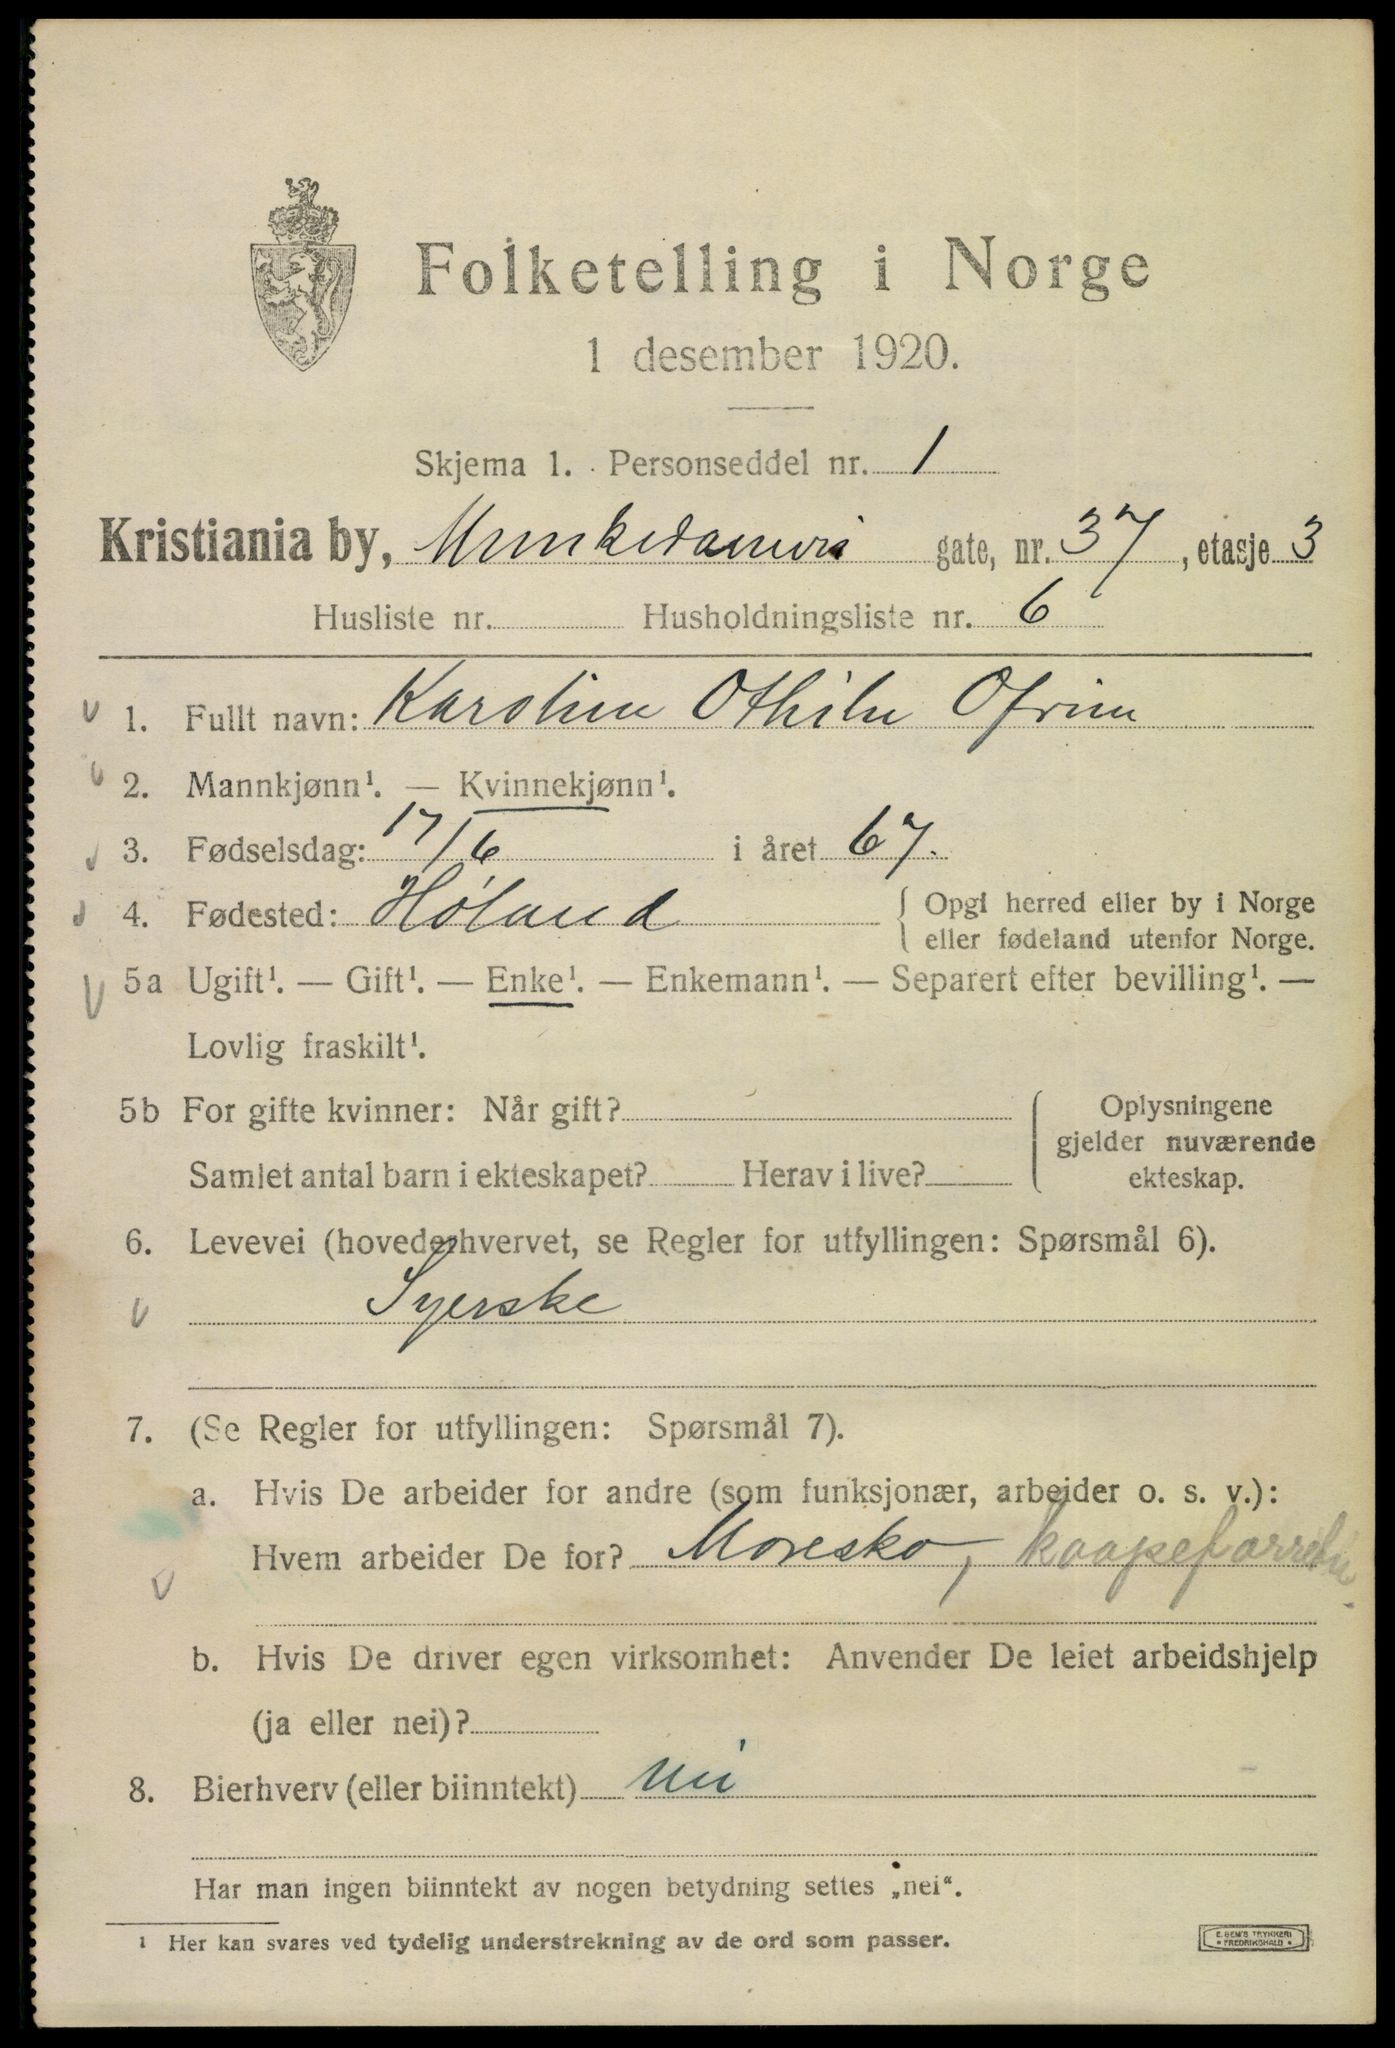 Folketelling i Norge
1 desember 1920.
Skjema 1. Personseddel nr. 1
Kristiania by, Munkedamsvei gate, nr. 37, etasje 3
Husliste nr. Husholdningsliste nr. 6
1. Fullt navn: Karoline Othilie
2. Mannkjønn¹. — Kvinnekjønn¹.
3. Fødselsdag: 17/6 i året 67.
4. Fødested: Høland { Opgi herred eller by i Norge
eller fødeland utenfor Norge.
5a Ugift¹. — Gift¹. — Enke¹. — Enkemann¹. — Separert efter bevilling¹. —
Lovlig fraskilt¹.
5b For gifte kvinner: Når gift? { Oplysningene
gjelder nuværende
Samlet antal barn i ekteskapet? Herav i live? ekteskap.
6. Levevei (hovederhvervet, se Regler for utfyllingen: Spørsmål 6).
Syerske
7. (Se Regler for utfyllingen: Spørsmål 7).
a. Hvis De arbeider for andre (som funksjonær, arbeider o. s. v.):
Hvem arbeider De for? Moresko, kaapeforretn.
b. Hvis De driver egen virksomhet: Anvender De leiet arbeidshjelp
(ja eller nei)?
8. Bierhverv (eller biinntekt) nei
Har man ingen biinntekt av nogen betydning settes „nei“.
¹ Her kan svares ved tydelig understrekning av de ord som passer.
E. SEM'S TRYKKERI
• FREDRIKSHALD •